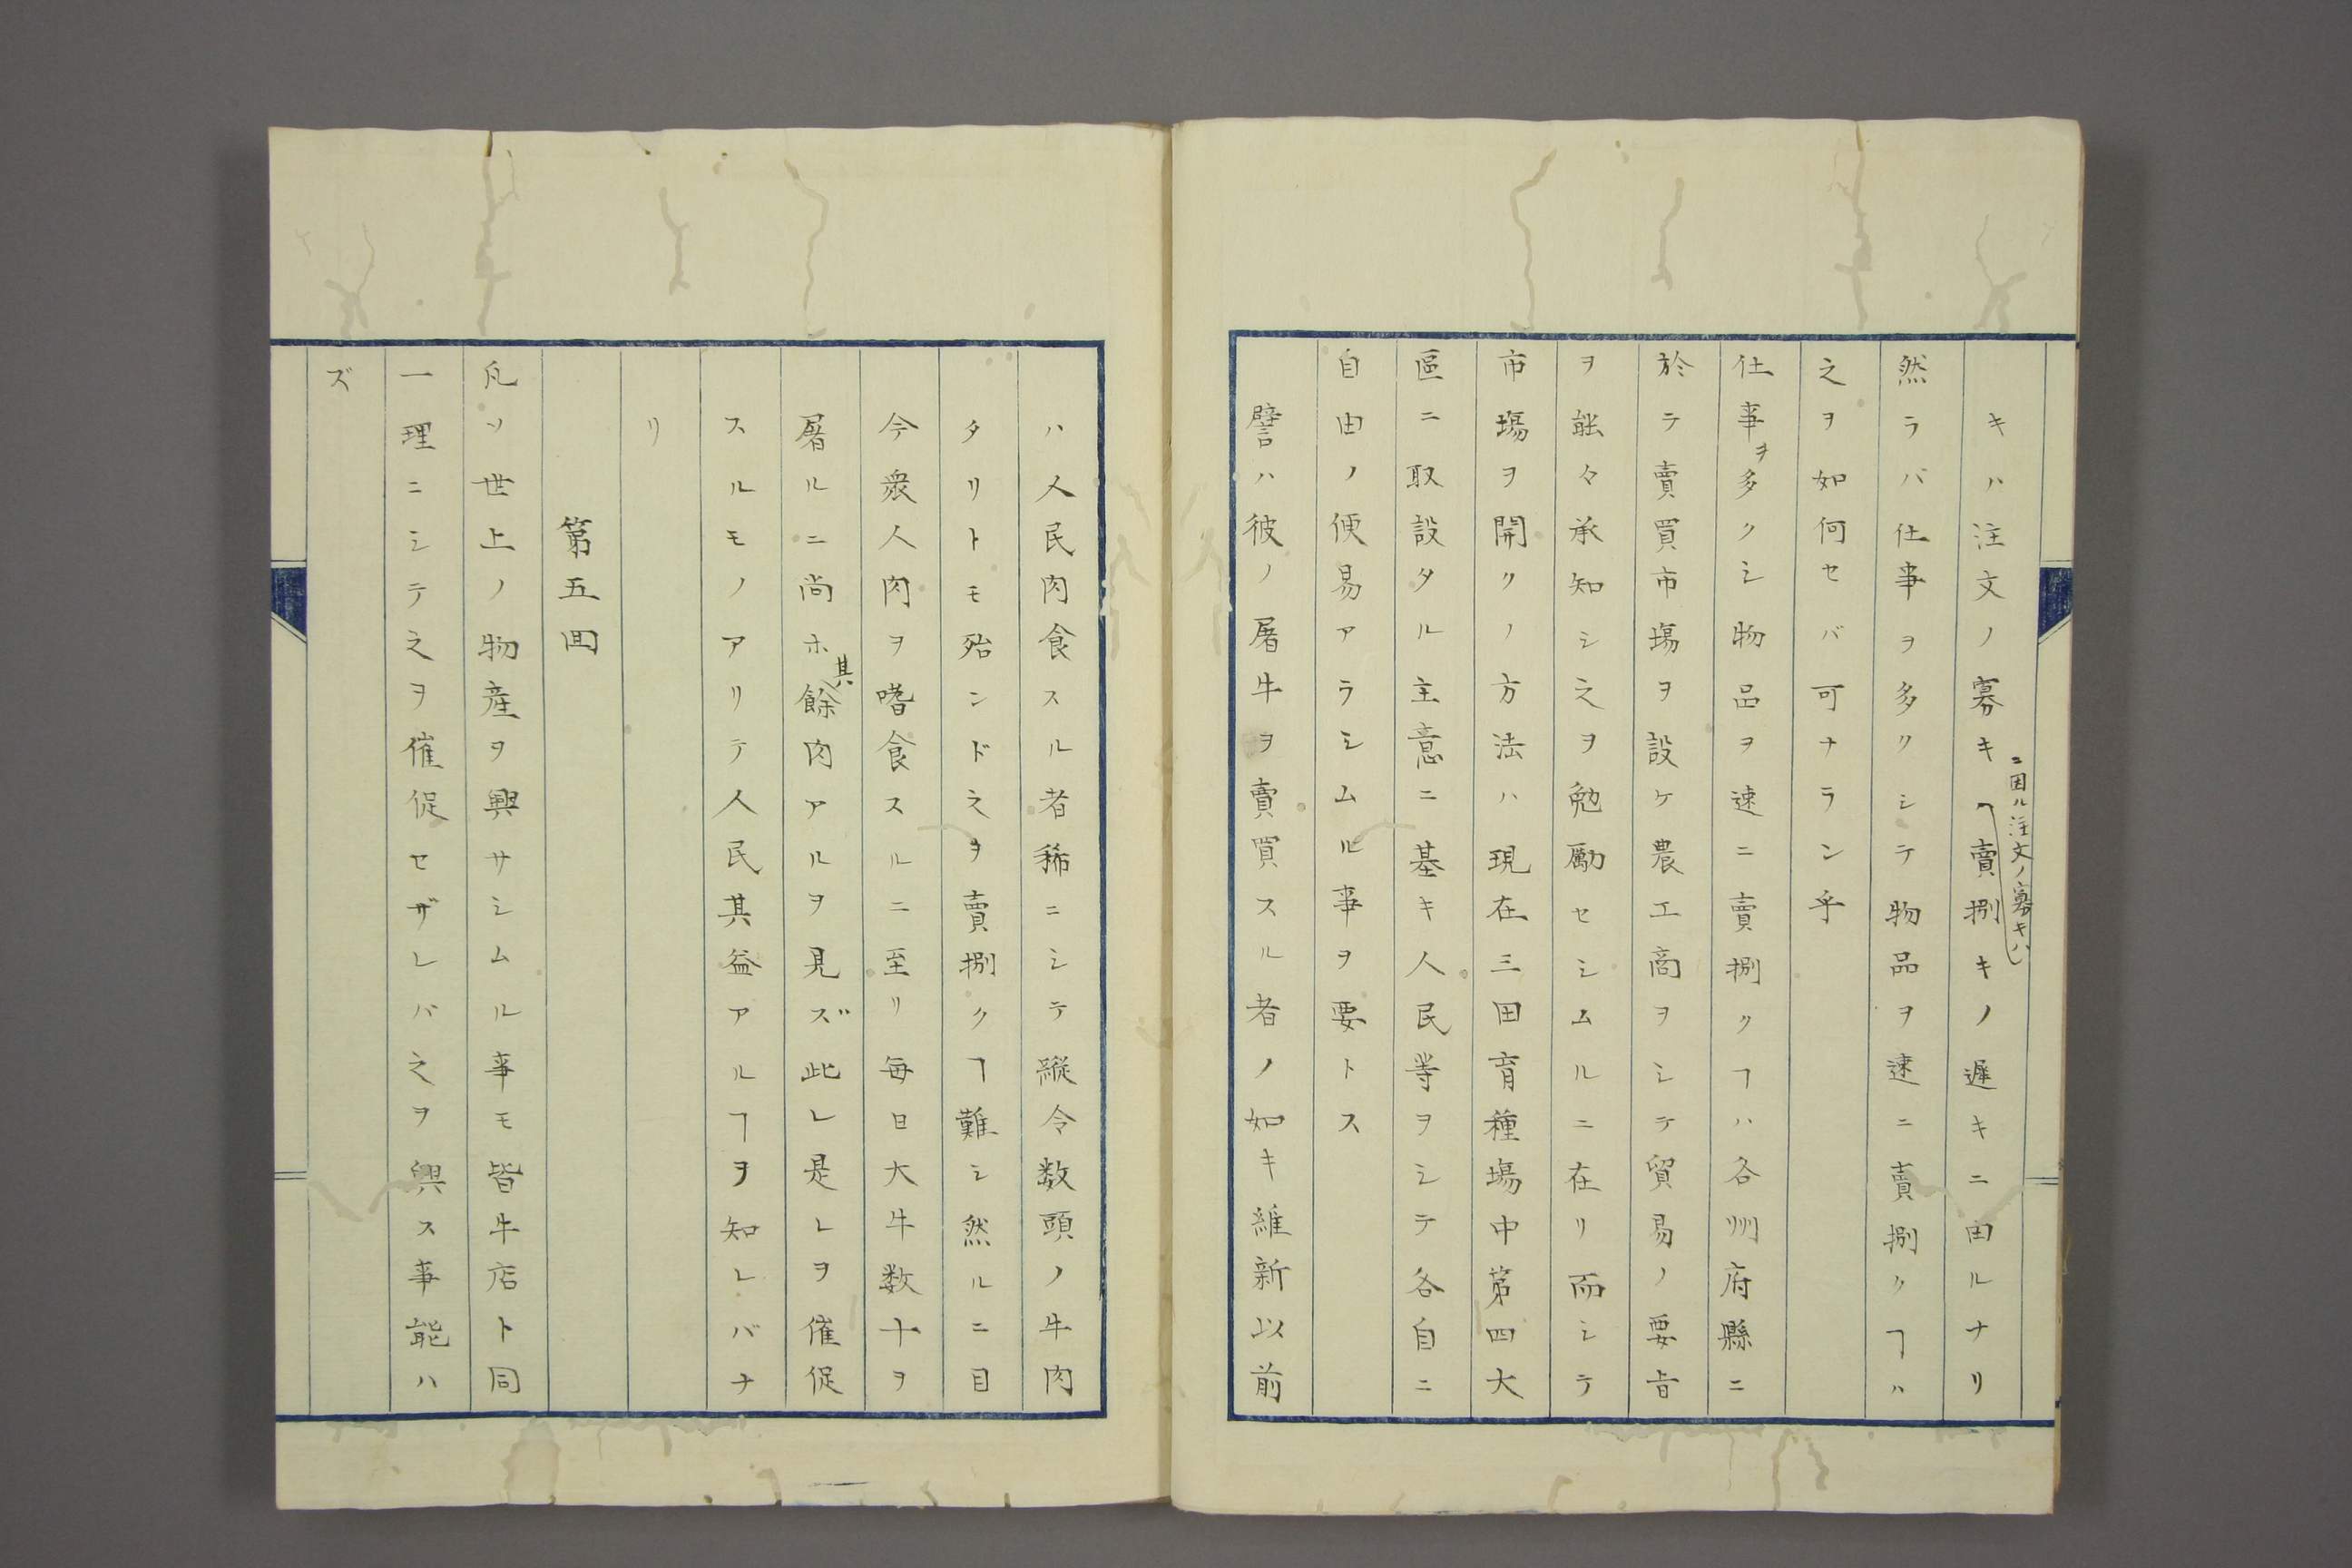 キハ注文ノ寡キヿ賣捌キノ遅キニ由ルナリ
ニ因ル注文ノ寡キハ
然ラバ仕事ヲ多クシテ物品ヲ速ニ賣捌クヿハ
之ヲ如何セバ可ナラン乎
仕事ヲ多クシ物品ヲ速ニ賣捌クヿハ各州府縣ニ
於テ賣買市場ヲ設ケ農工商ヲシテ貿易ノ要旨
ヲ能々承知シ之ヲ勉勵セシムルニ在リ而シテ
市場ヲ開クノ方法ハ現在三田育種場中第四大
區ニ取設タル主意ニ基キ人民等ヲシテ各自ニ
自由ノ便易アラシムル事ヲ要トス
譬ハ彼ノ屠牛ヲ賣買スル者ノ如キ維新以前
ハ人民肉食スル者稀ニシテ縦令数頭ノ牛肉
タリトモ殆ンド之ヲ賣捌クヿ難シ然ルニ目
今衆人肉ヲ嗜食スルニ至リ毎日大牛数十ヲ
屠ルニ尚ホ其餘肉アルヲ見ズ此レ是レヲ催促
スルモノアリテ人民其益アルヿヲ知レバナ
リ
第五回
凡ソ世上ノ物産ヲ興サシムル事モ皆牛店ト同
一理ニシテ之ヲ催促セザレバ之ヲ興ス事能ハ
ズ